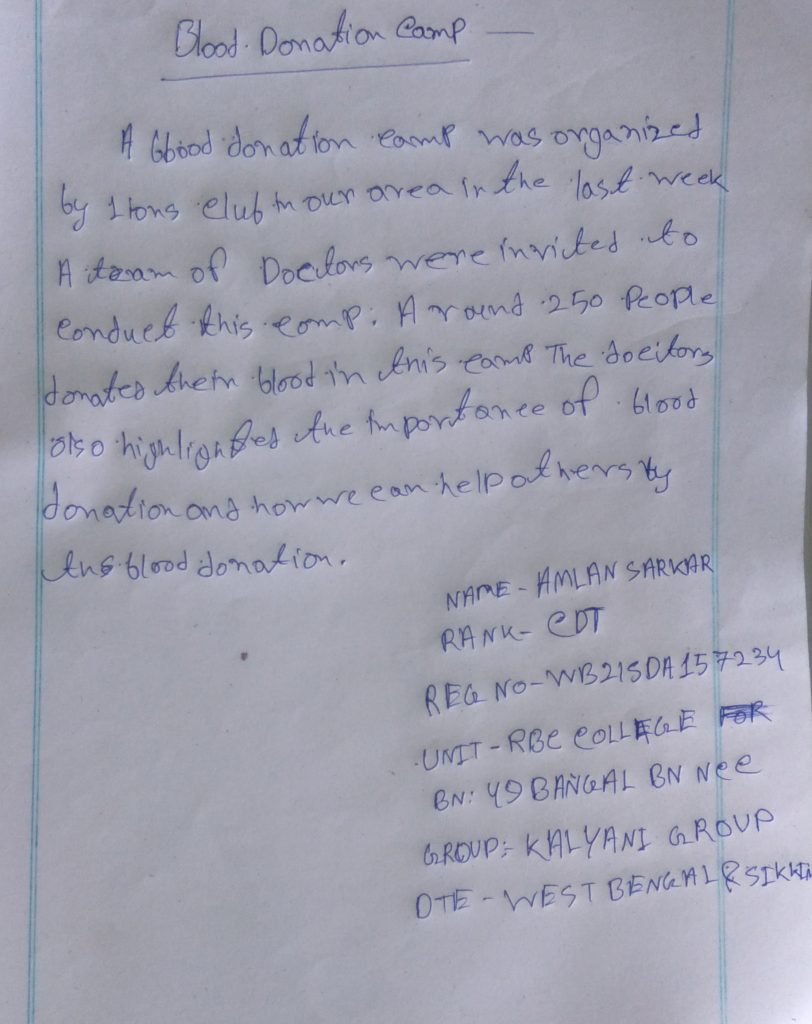 Blood Donation Camp —
A bbood donation camp was organized
by Lions club in our area in the last week
A team of Doctors were invited to
conduct this comp. Around 250 People
donated their blood in this camp The doctors
also highlighted the importance of blood
donation and how we can help others by
the blood donation.
NAME - AMLAN SARKAR
RANK - CDT
REG NO - WB21SDA157234
UNIT - RBC COLLEGE
BN: 49 BANGAL BN NCC
GROUP: KALYANI GROUP
DTE - WEST BENGAL & SIKKIM